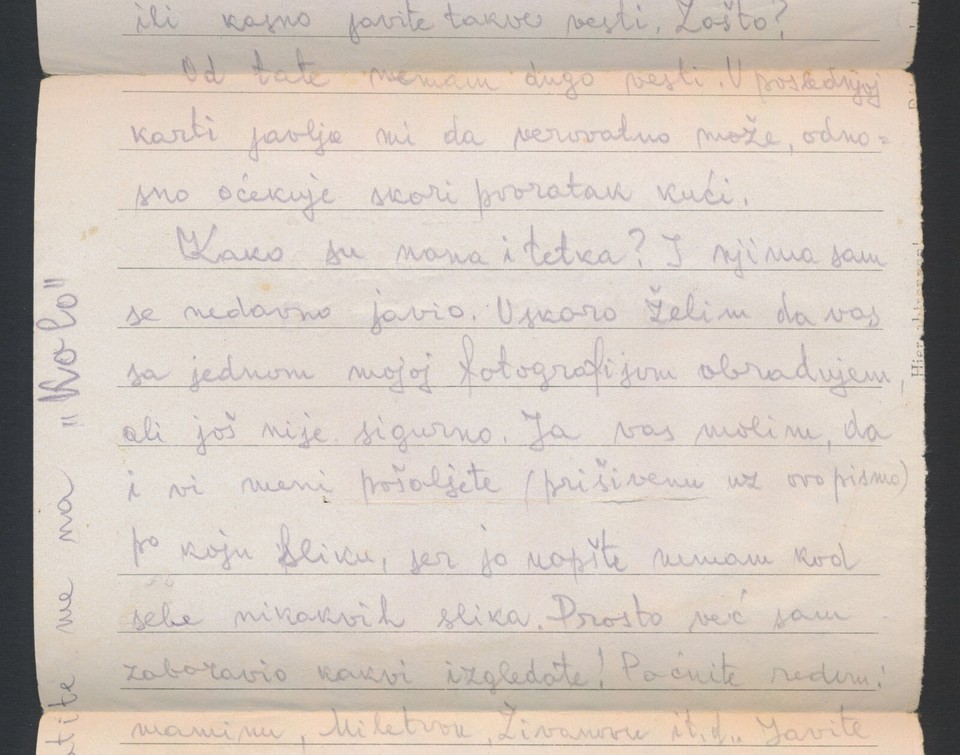 ili kasno javite takve vesti. Zašto?
Od tate nemam dugo vesti. U poslednjoj
karti javlja mi da verovatno može, odno=
sno oćekuje skori povratak kući.
Kako su nana i tetka? I njima sam
se nedavno javio. Uskoro želim da vas
sa jednom mojoj fotografijom obradujem,
ali još nije sigurno. Ja vas molim, da
i vi meni pošaljete (prišivenu uz ovo pismo)
po koju sliku, jer ja uopšte nemam kod
sebe nikakvih slika. Prosto već sam
zaboravio kakvi izgledate! Poćnite redom:
maminu, Miletovu, Živanovu it.d.. Javite
me na "Kolo"
Hier